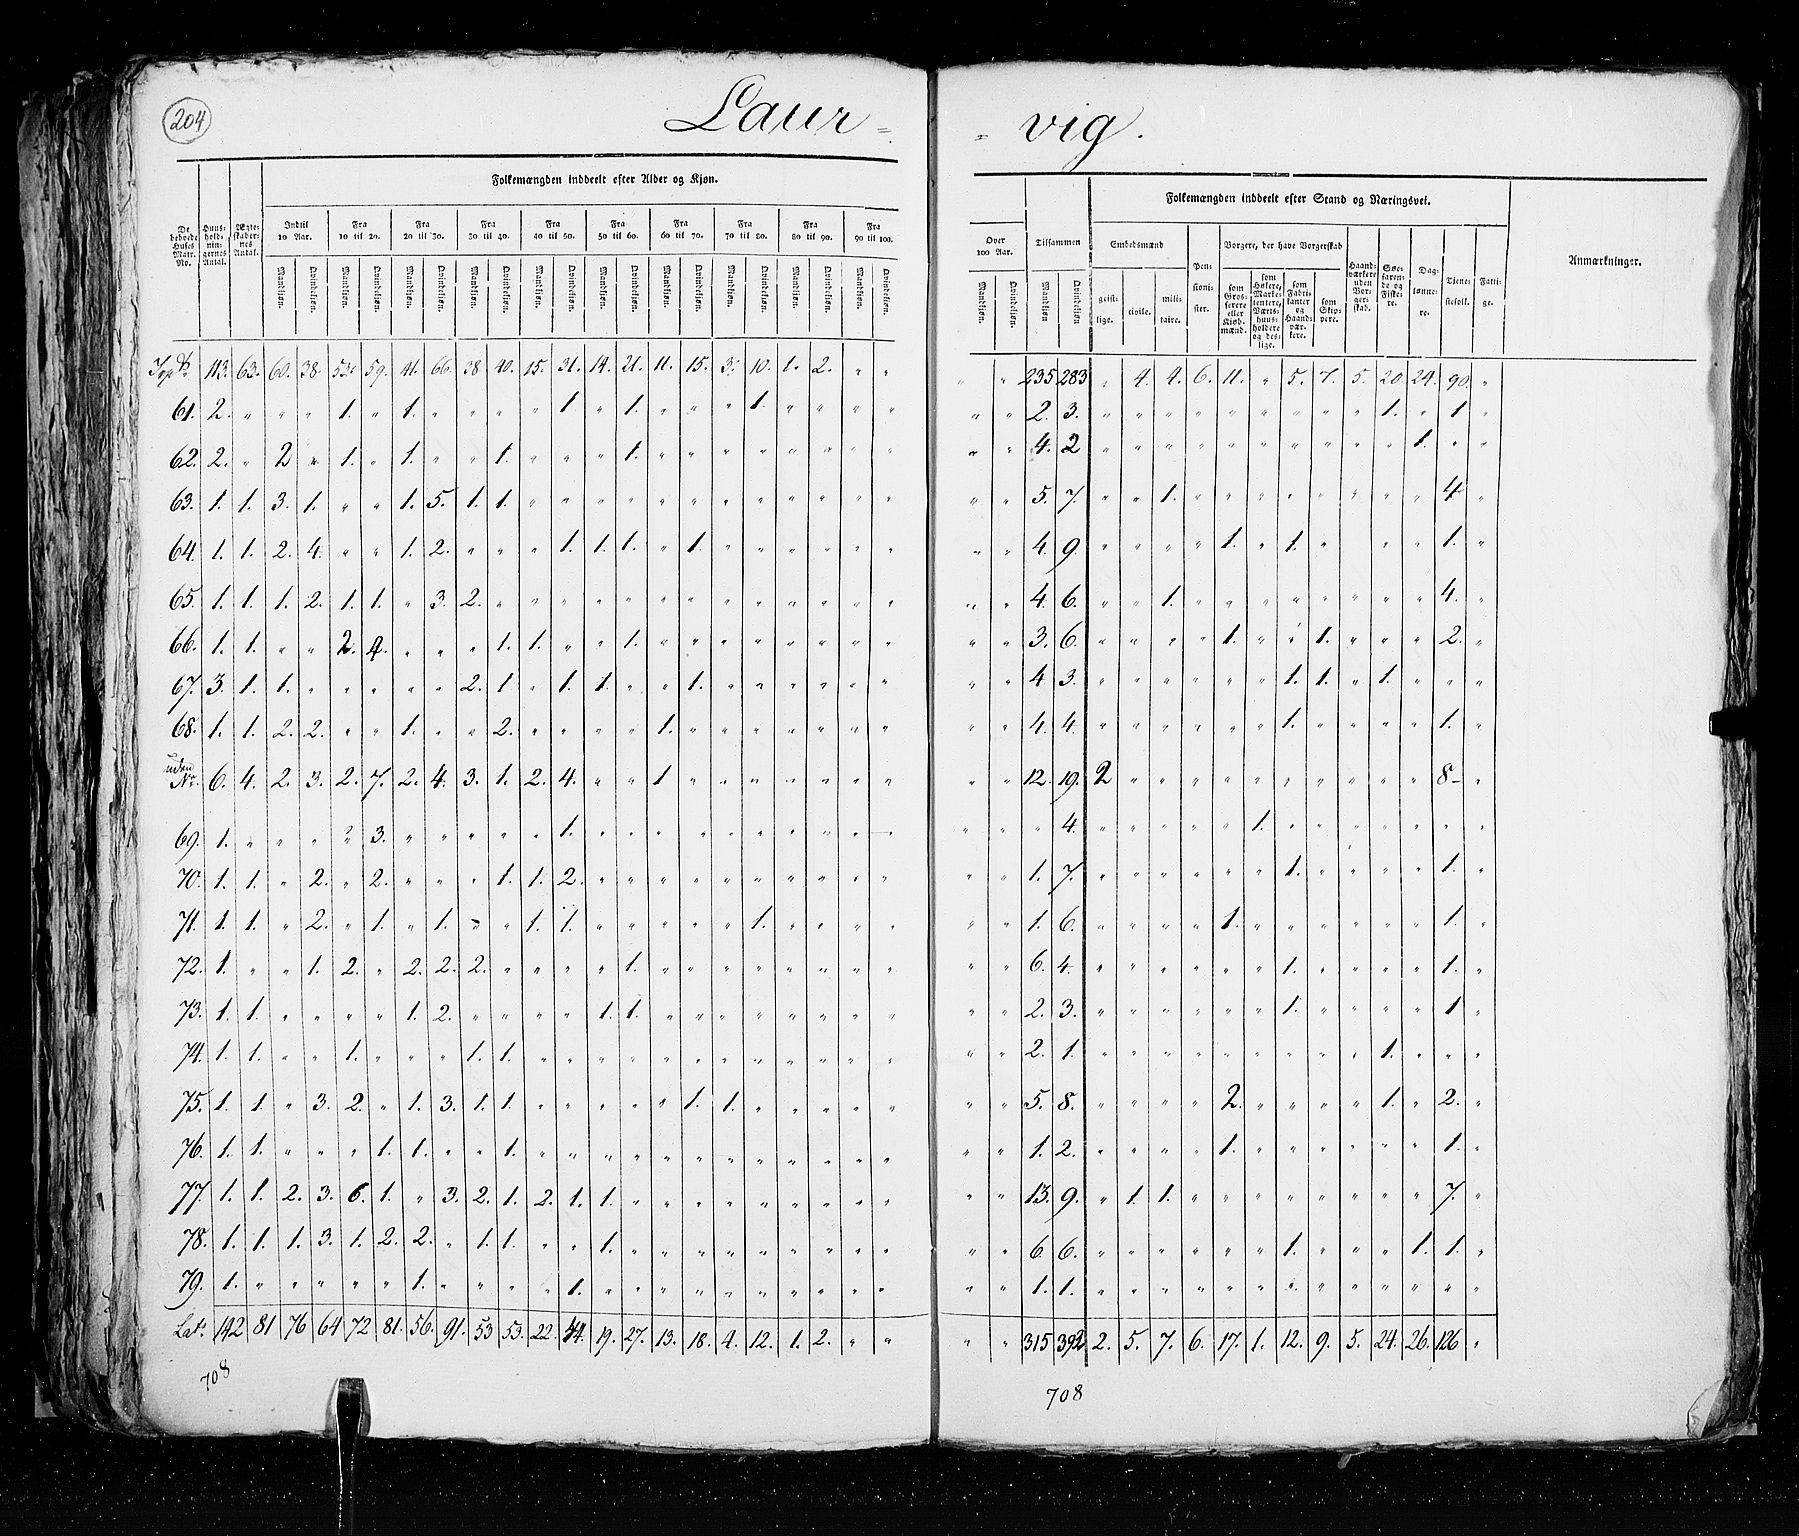 204
Laur= =vig.
Folkemængden inddeelt efter Alder og Kjøn.
Folkemængden inddeelt efter Stand og Næringsvei.
De beboede Huses Matr. No.
Huus-holdningernes Antal.
Ægteskabernes Antal.
Indtil 10 Aar. Fra 10 til 20. Fra 20 til 30. Fra 30 til 40. Fra 40 til 50. Fra 50 til 60. Fra 60 til 70. Fra 70 til 80. Fra 80 til 90. Fra 90 til 100. Over 100 Aar. Tilsammen
Mandkjøn. Qvindekjøn. Mandkjøn. Qvindekjøn. Mandkjøn. Qvindekjøn. Mandkjøn. Qvindekjøn. Mandkjøn. Qvindekjøn. Mandkjøn. Qvindekjøn. Mandkjøn. Qvindekjøn. Mandkjøn. Qvindekjøn. Mandkjøn. Qvindekjøn. Mandkjøn. Qvindekjøn. Mandkjøn. Qvindekjøn. Mandkjøn Qvindekjøn
Embedsmænd
geistlige. civile. militaire.
Pensionister.
Borgere, der have Borgerskab
som Grosserere eller Kjøbmænd.
som Høkere, Marketentere, Værtshuusholdere og deslige.
som Fabrikanter og Haandværkere.
som Skippere.
Haandværkere uden Borgerskab.
Søefarende og Fiskere.
Daglønnere.
Tienestefolk.
Fattige.
Anmærkninger.
113. 63. 60. 38. 53. 59. 41. 66. 38. 40. 15. 31. 14. 21. 11. 15. 3. 10. 1. 2. " " " " 235 283 " 4. 4. 6. 11. " 5. 7. 5. 20. 24. 90. "
61. 2. " " " 1. " 1. " " " " 1. " 1. " " " 1. " " " " " " 2. 3. " " " " " " " " " 1. " 1 "
62. 2. " 2 " 1. " 1. " " 1. " " " 1. " " " " " " " " " " 4. 2 " " " " " " " " " " 1. " "
63. 1. 1. 3. 1. " " 1. 5. 1. 1. " " " " " " " " " " " " " " 5. 7. " " 1. " " " " " " " " 4 "
64. 1. 1. 2. 4. " " 1. 2. " " " 1. 1. 1. " 1. " " " " " " " " 4. 9. " " " " 1. " 1. " " " 1. "
65. 1. 1. 1. 2. 1. 1. " 3. 2. " " " " " " " " " " " " " " " 4. 6. " " 1. " " " " " " " " 4. "
66. 1. 1. " " 2. 4. " " " 1. 1. " " 1. " " " " " " " " " " 3. 6. " " " " 1. " " 1. " " " 2. "
67. 3. 1. 1. " " " " " 2. 1. " 1. 1. " " 1. " " " " " " " " 4 3. " " " " " " 1. 1. " 1. " " "
68. 1. 1. 2. 2. " " 1. " " 2. " " " " 1. " " " " " " " " " 4. 4. " " " " " " 1. " " " " 1. "
uden Nr. 6. 4. 2. 3. 2. 7. 2. 4. 3. 1. 2. 4. " " 1 " " " " " " " " " 12. 19. 2 " " " " " " " " " " 8- "
69. 1. " " " " 3. " " " " " 1. " " " " " " " " " " " " " 4. " " " " " 1. " " " " " " "
70. 1. 1. " 2. " 2. " " " 1. 1. 2. " " " " " " " " " " " " 1. 7. " " " " " " 1. " " " " 1. "
71. 1. 1. " 2. " 1. " 1. " " 1. 1. " " " " " 1. " " " " " " 1. 6. " " " " 1. " " " " " " 1. "
72. 1. " " 1. 2. " 2. 2. 2. " " " " 1. " " " " " " " " " " 6. 4. " " " " " " 1. " " " " 1. "
73. 1. 1. " " " " 1. 2. " " " " 1. 1. " " " " " " " " " " 2. 3. " " " " " " 1. " " " " 1 "
74. 1. 1. " " 1. " " " 1. 1. " " " " " " " " " " " " " " 2. 1. " " " " " " " " " 1. " " "
75. 1. 1. " 3. 2. " 1. 3. 1. 1. " " " " " 1. 1. " " " " " " " 5. 8. " " " " 2. " " " " 1. " 2. "
76. 1. 1. " " " 1. 1. " " 1. " " " " " " " " " " " " " " 1. 2. " " " " 1. " " " " " " 1. "
77. 1. 1. 2. 3. 6. 1. " 3. 2. 1. 2. 1. 1. " " " " " " " " " " " 13. 9. " 1. 1. " " " " " " " " 7. "
78. 1. 1. 1. 3. 1. 2. 2. " 1. 1. " " 1. " " " " " " " " " " " 6 6. " " " " " " 1. " " " 1. 1. "
79. 1. " " " " " 1. " " " " 1. " " " " " " " " " " " " 1. 1. " " " " " " " " " " " " "
Lat. 142 81 76 64 72 81. 56. 91. 53 53. 22. 44. 19. 27. 13. 18. 4. 12. 1. 2. " " " " 315 392 2. 5. 7. 6. 17. 1. 12. 9. 5. 24. 26. 126 "
708
708